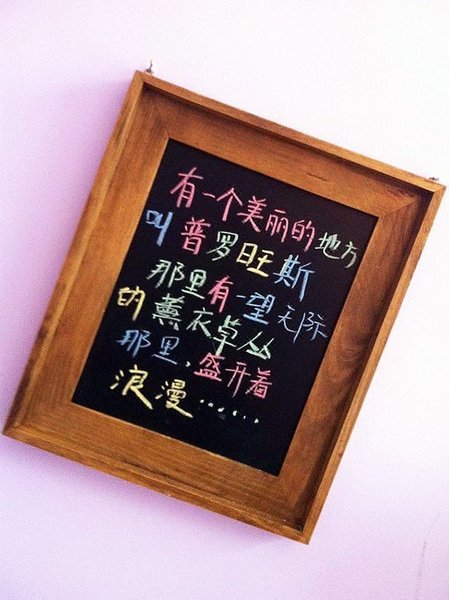 有一个美丽的地方
叫普罗旺斯
那里有一望无际
的薰衣草丛
那里,盛开着
浪漫......